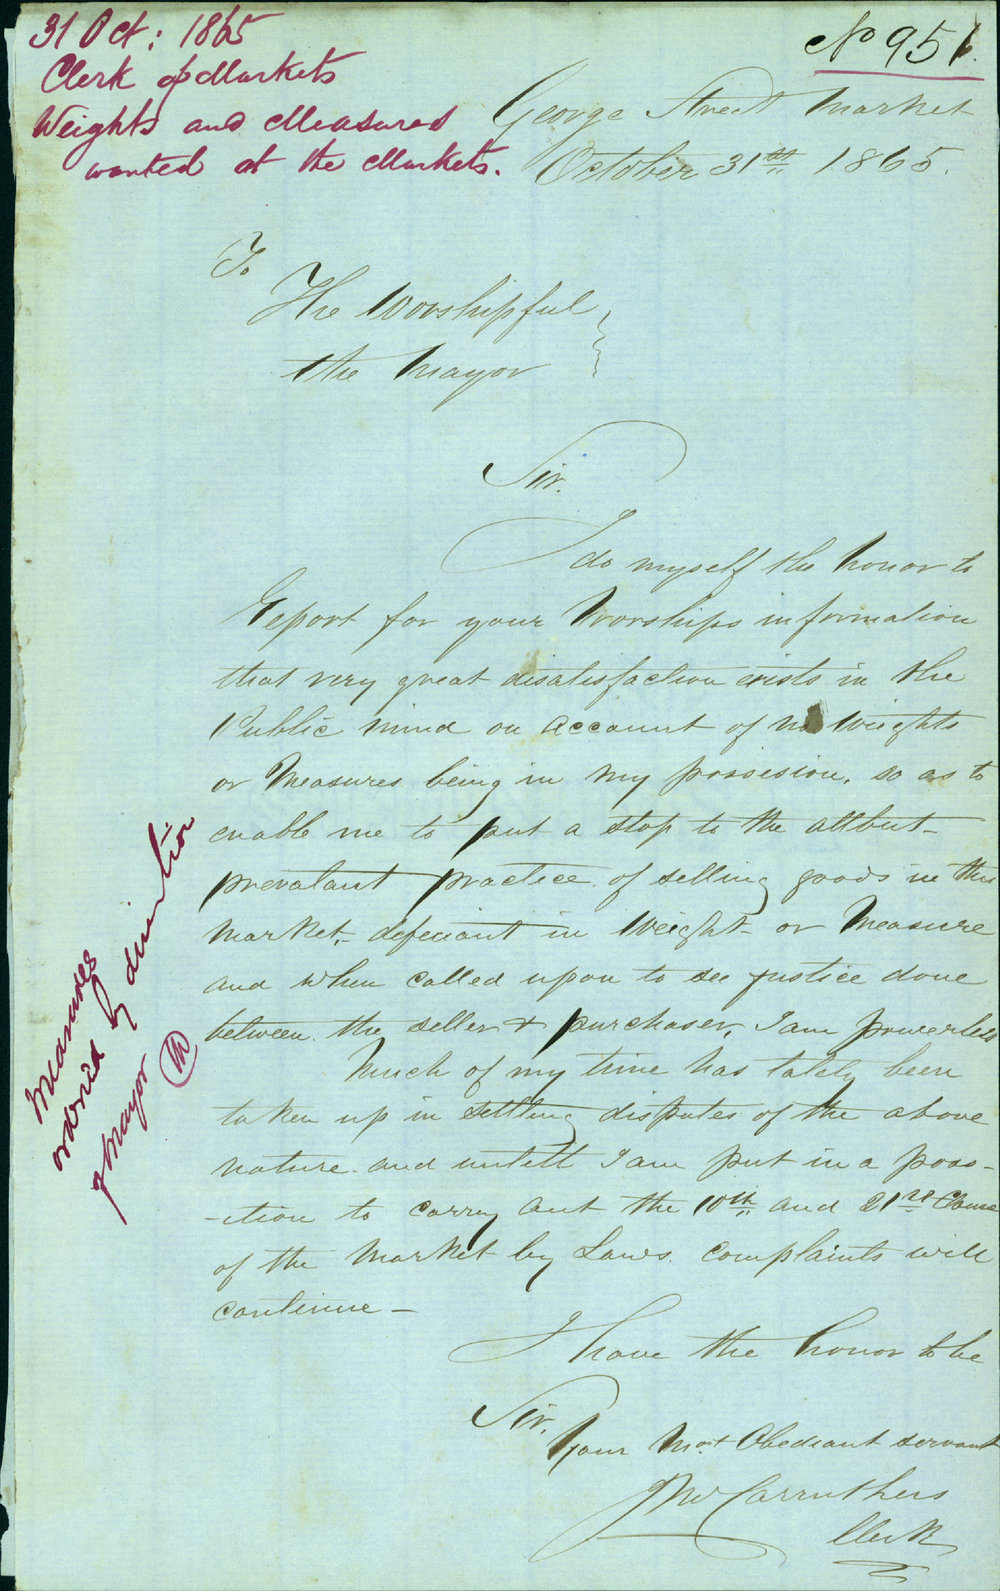 31 Oct: 1865
Clerk of Markets
Weights and Measures
wanted at the Markets.
No 951.
George Street Market
October 31st 1865.
To
The Worshipful
the Mayor
Sir.
I do myself the honor to
Report for your Worships information
that very great disatisfaction exists in the
Public mind on account of no Weights
or Measures being in my possesion, so as to
enable me to put a stop to the allbut-
prevalant practice of selling goods in this
Market, defeciant in Weight or Measure
and when called upon to see justice done
between the seller & purchaser, I am powerless
Much of my time has lately been
taken up in settling disputes of the above
nature and untill I am put in a poss-
-ition to carry out the 10th and 21st Clause
of the Market by Laws complaints will
continue -
I have the honor to be
Sir,
Your Mot Obediant servant
Jno Carruthers
Clerk
Measures
ordered by direction
of Mayor